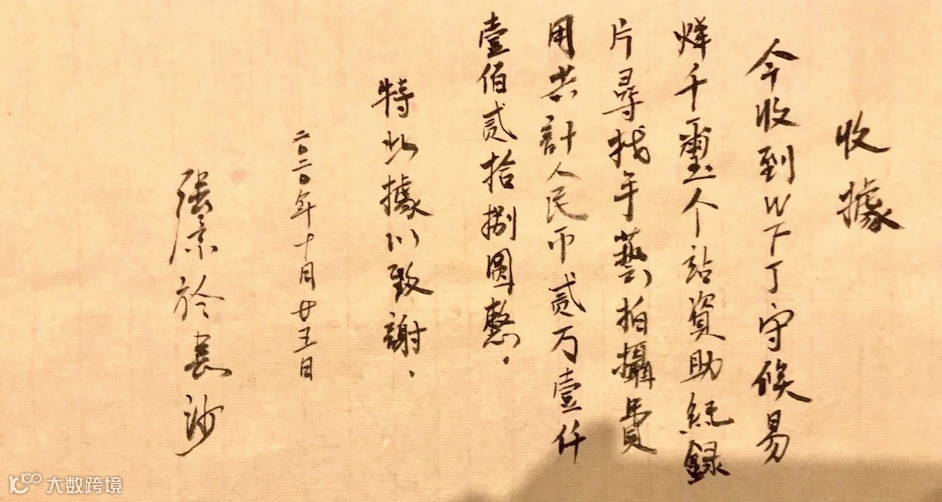 收據
今收到WTT守候易
烊千璽个站資助紀録
片尋找手藝拍攝費
用共計人民币贰万壹仟
壹佰贰拾捌圓整。
特此據以致謝.
二〇二〇年十月廿五日
張景於長沙
大数跨境